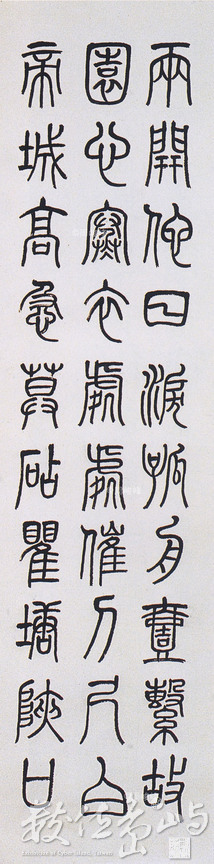 兩開他日淚孤舟壹繫故
園心寒衣處處催刀尺白
帝城高急暮砧瞿塘陝口